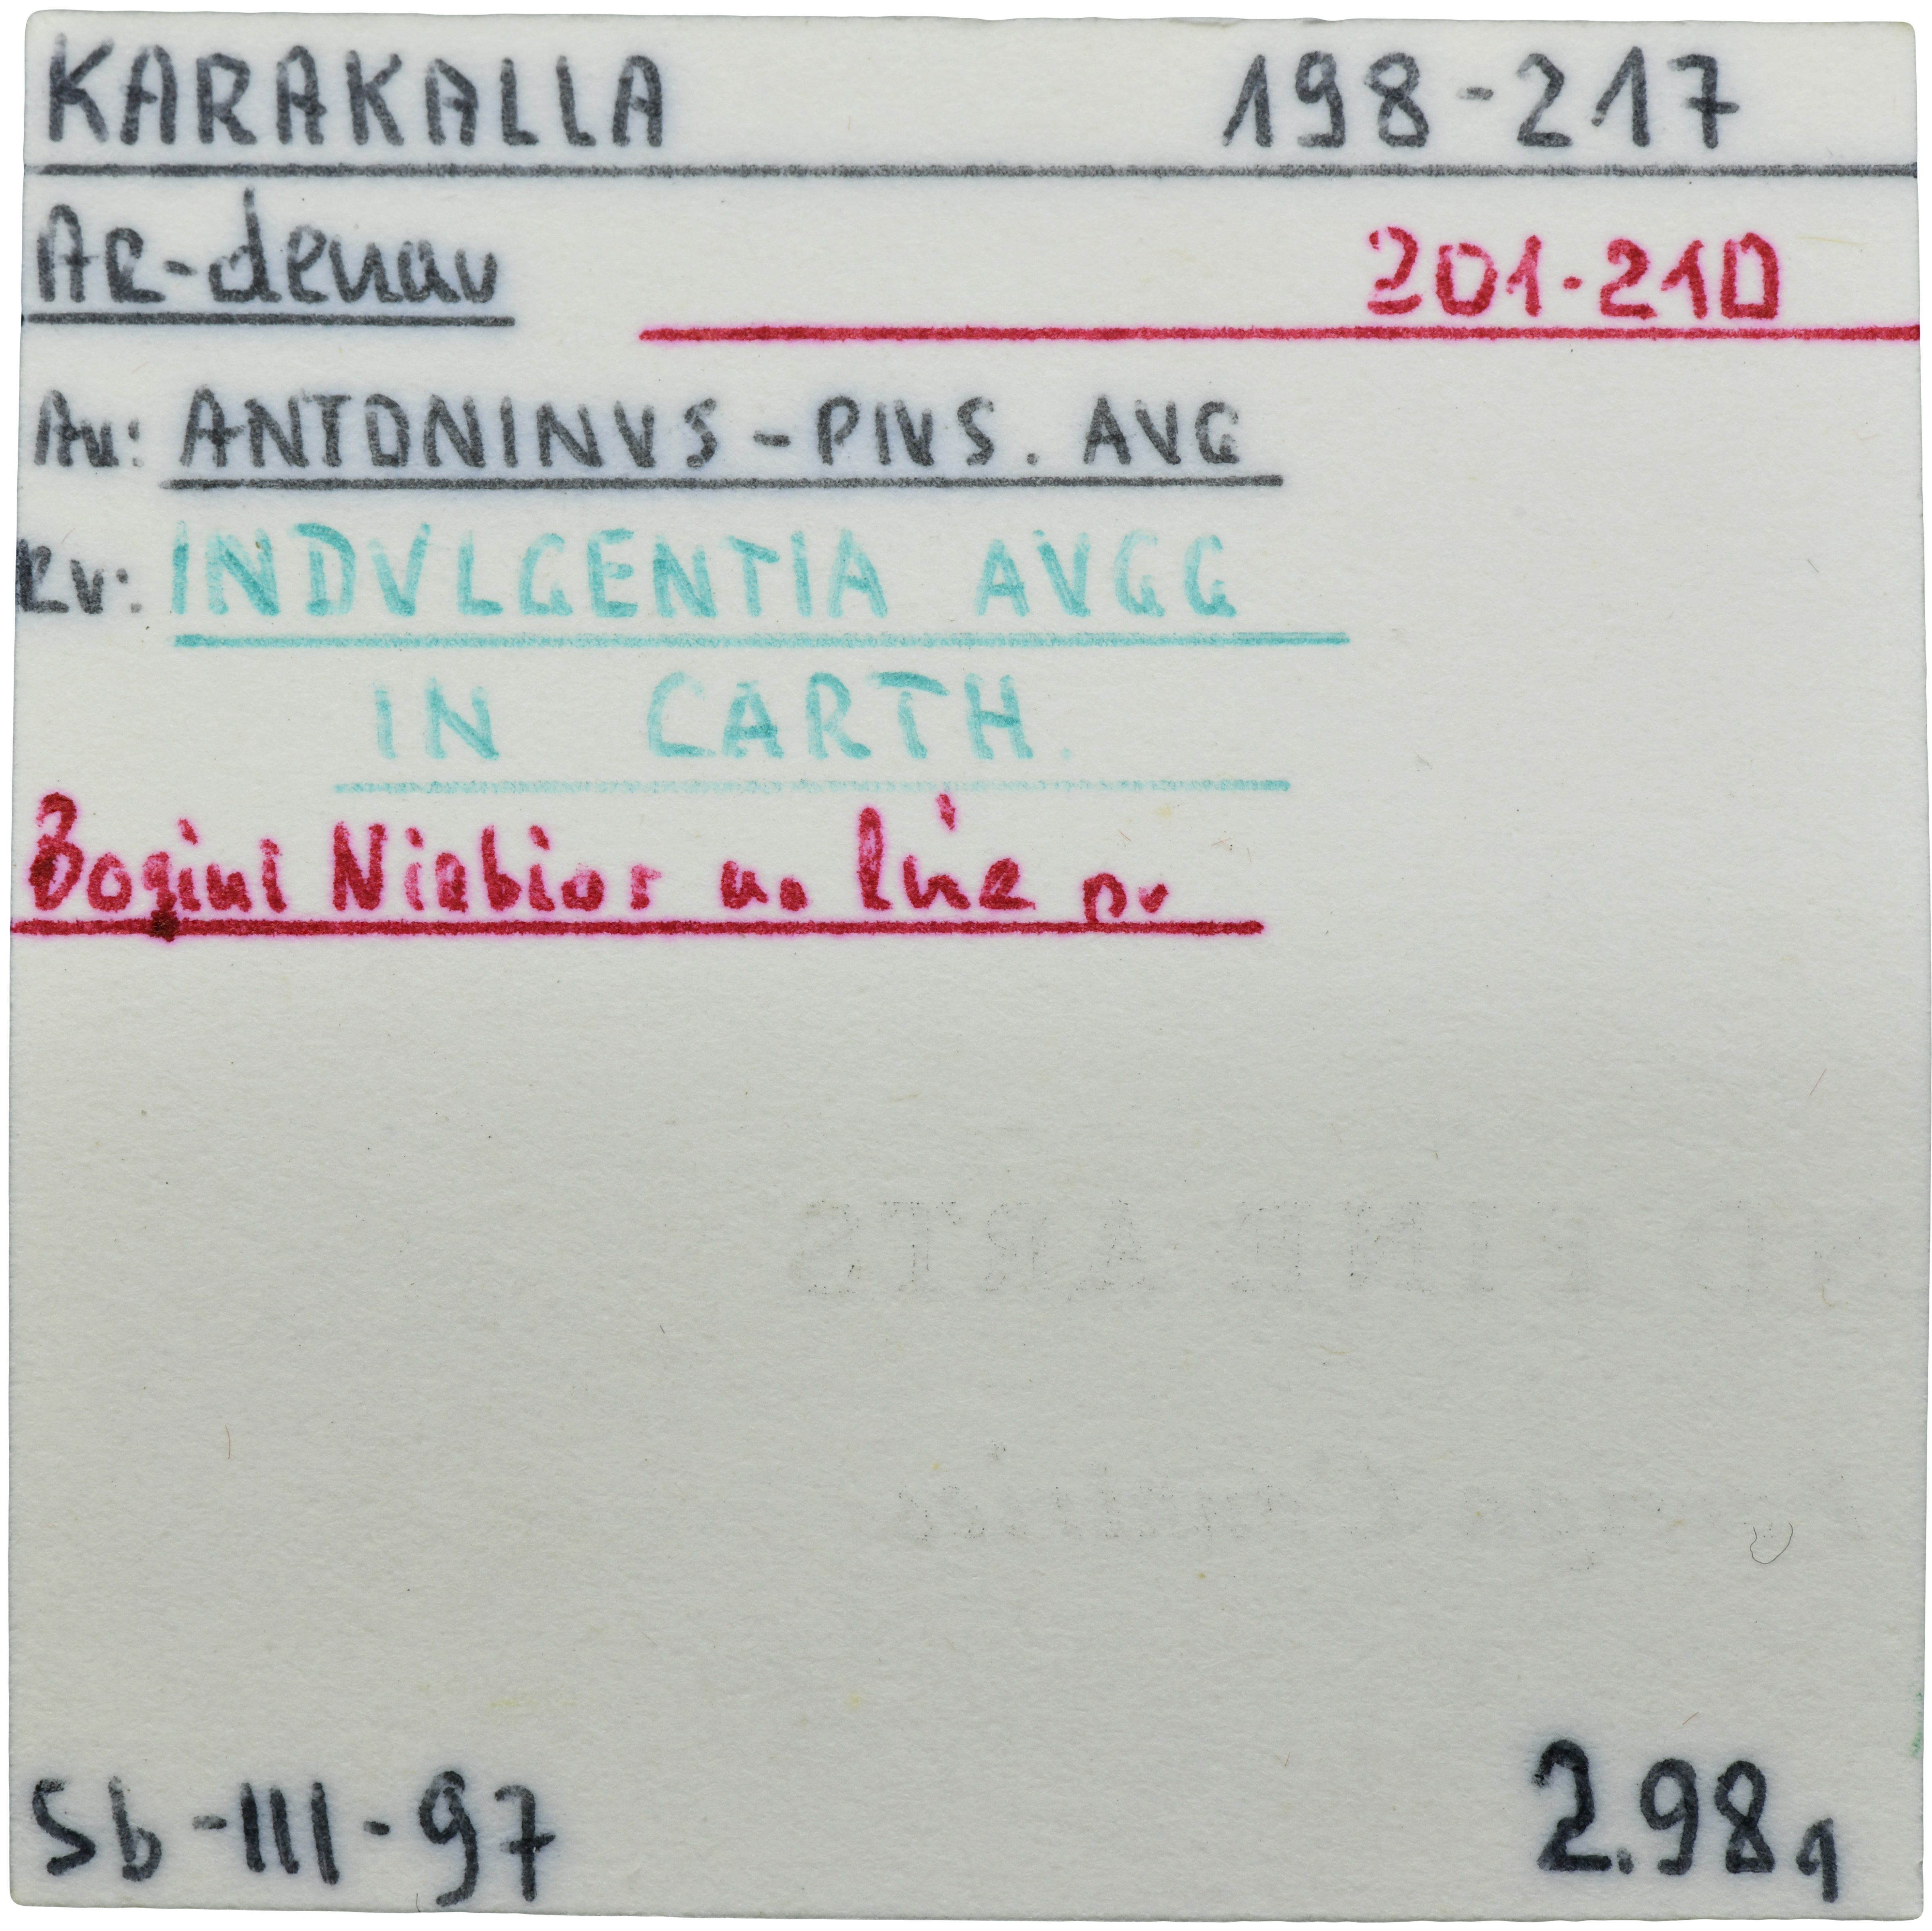 KARAKALLA 198-217
AR-denar 201-210
Av: ANTONINVS - PIVS. AVG
Rv: INDVLGENTIA AVGG
IN CARTH.
Bogini Niebios na lwie pr
FINE ARTS
Sb-III-97 2.98g